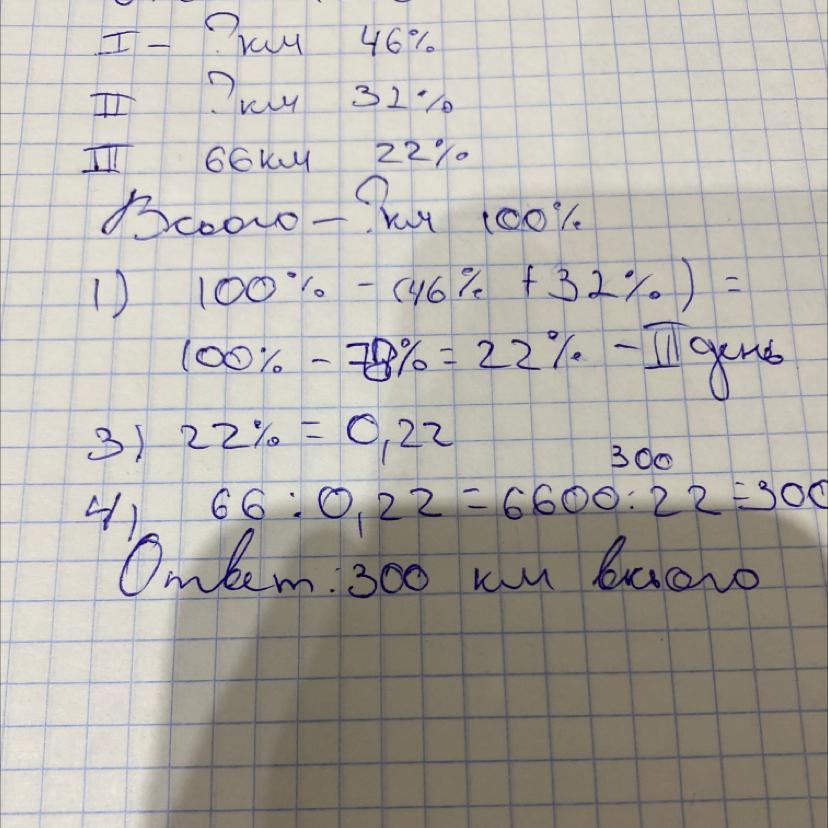 I - ?км 46%
II ?км 32%
III 66км 22%
Всього - ?км 100%
1) 100% - (46% + 32%) =
100% - 78% = 22% - III день
3) 22% = 0,22
300
4) 66 : 0,22 = 6600 : 22 = 300
Ответ: 300 км всього